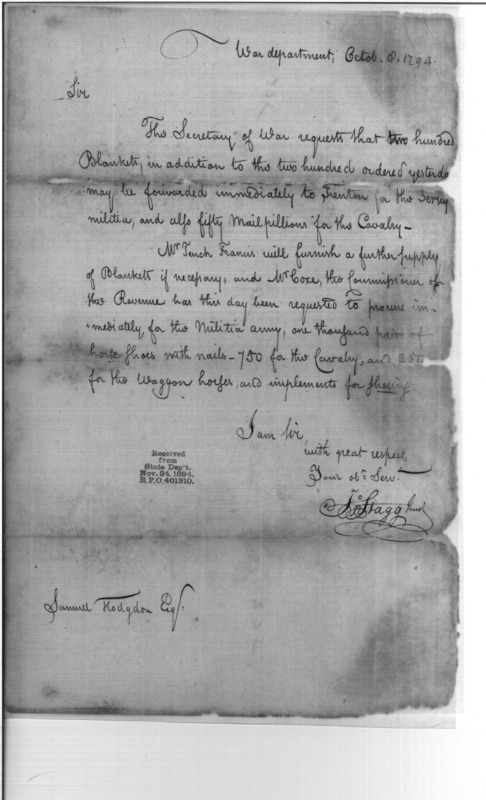 War department, Octob. 8. 1794.
Sir
The Secretary of War requests that two hundred
Blankets, in addition to the two hundred ordered yesterda
may be forwarded immediately to Trenton for the Jersey
militia, and also fifty Mailpillions for the Cavalry—
Mr Tench Francis will furnish a further supply
of Blankets if necessary; and Mr Coxe, the Commissioner of
the Revenue has this day been requested to procure im-
mediately, for the Militia army, one thousand pairs of
horse shoes with nails—750 for the Cavalry, and 250
for the Waggon horses, and implements for shoeing.
I am Sir
with great respect,
Your obt Serv.
Jno Stagg Junr
Received
from
State Dep't.
Nov. 24. 1894.
R.P.O. 401310.
Samuel Hodgdon Esqr.